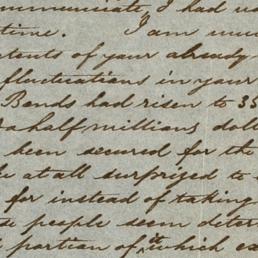 mmunicate I had re
time. I am muc
ntents of your already
fluctuations in your
Bonds had risen to 35
a half millions doll
been secured for the
at all surprized to
for instead of taking
people seem deter
portion of it which ca